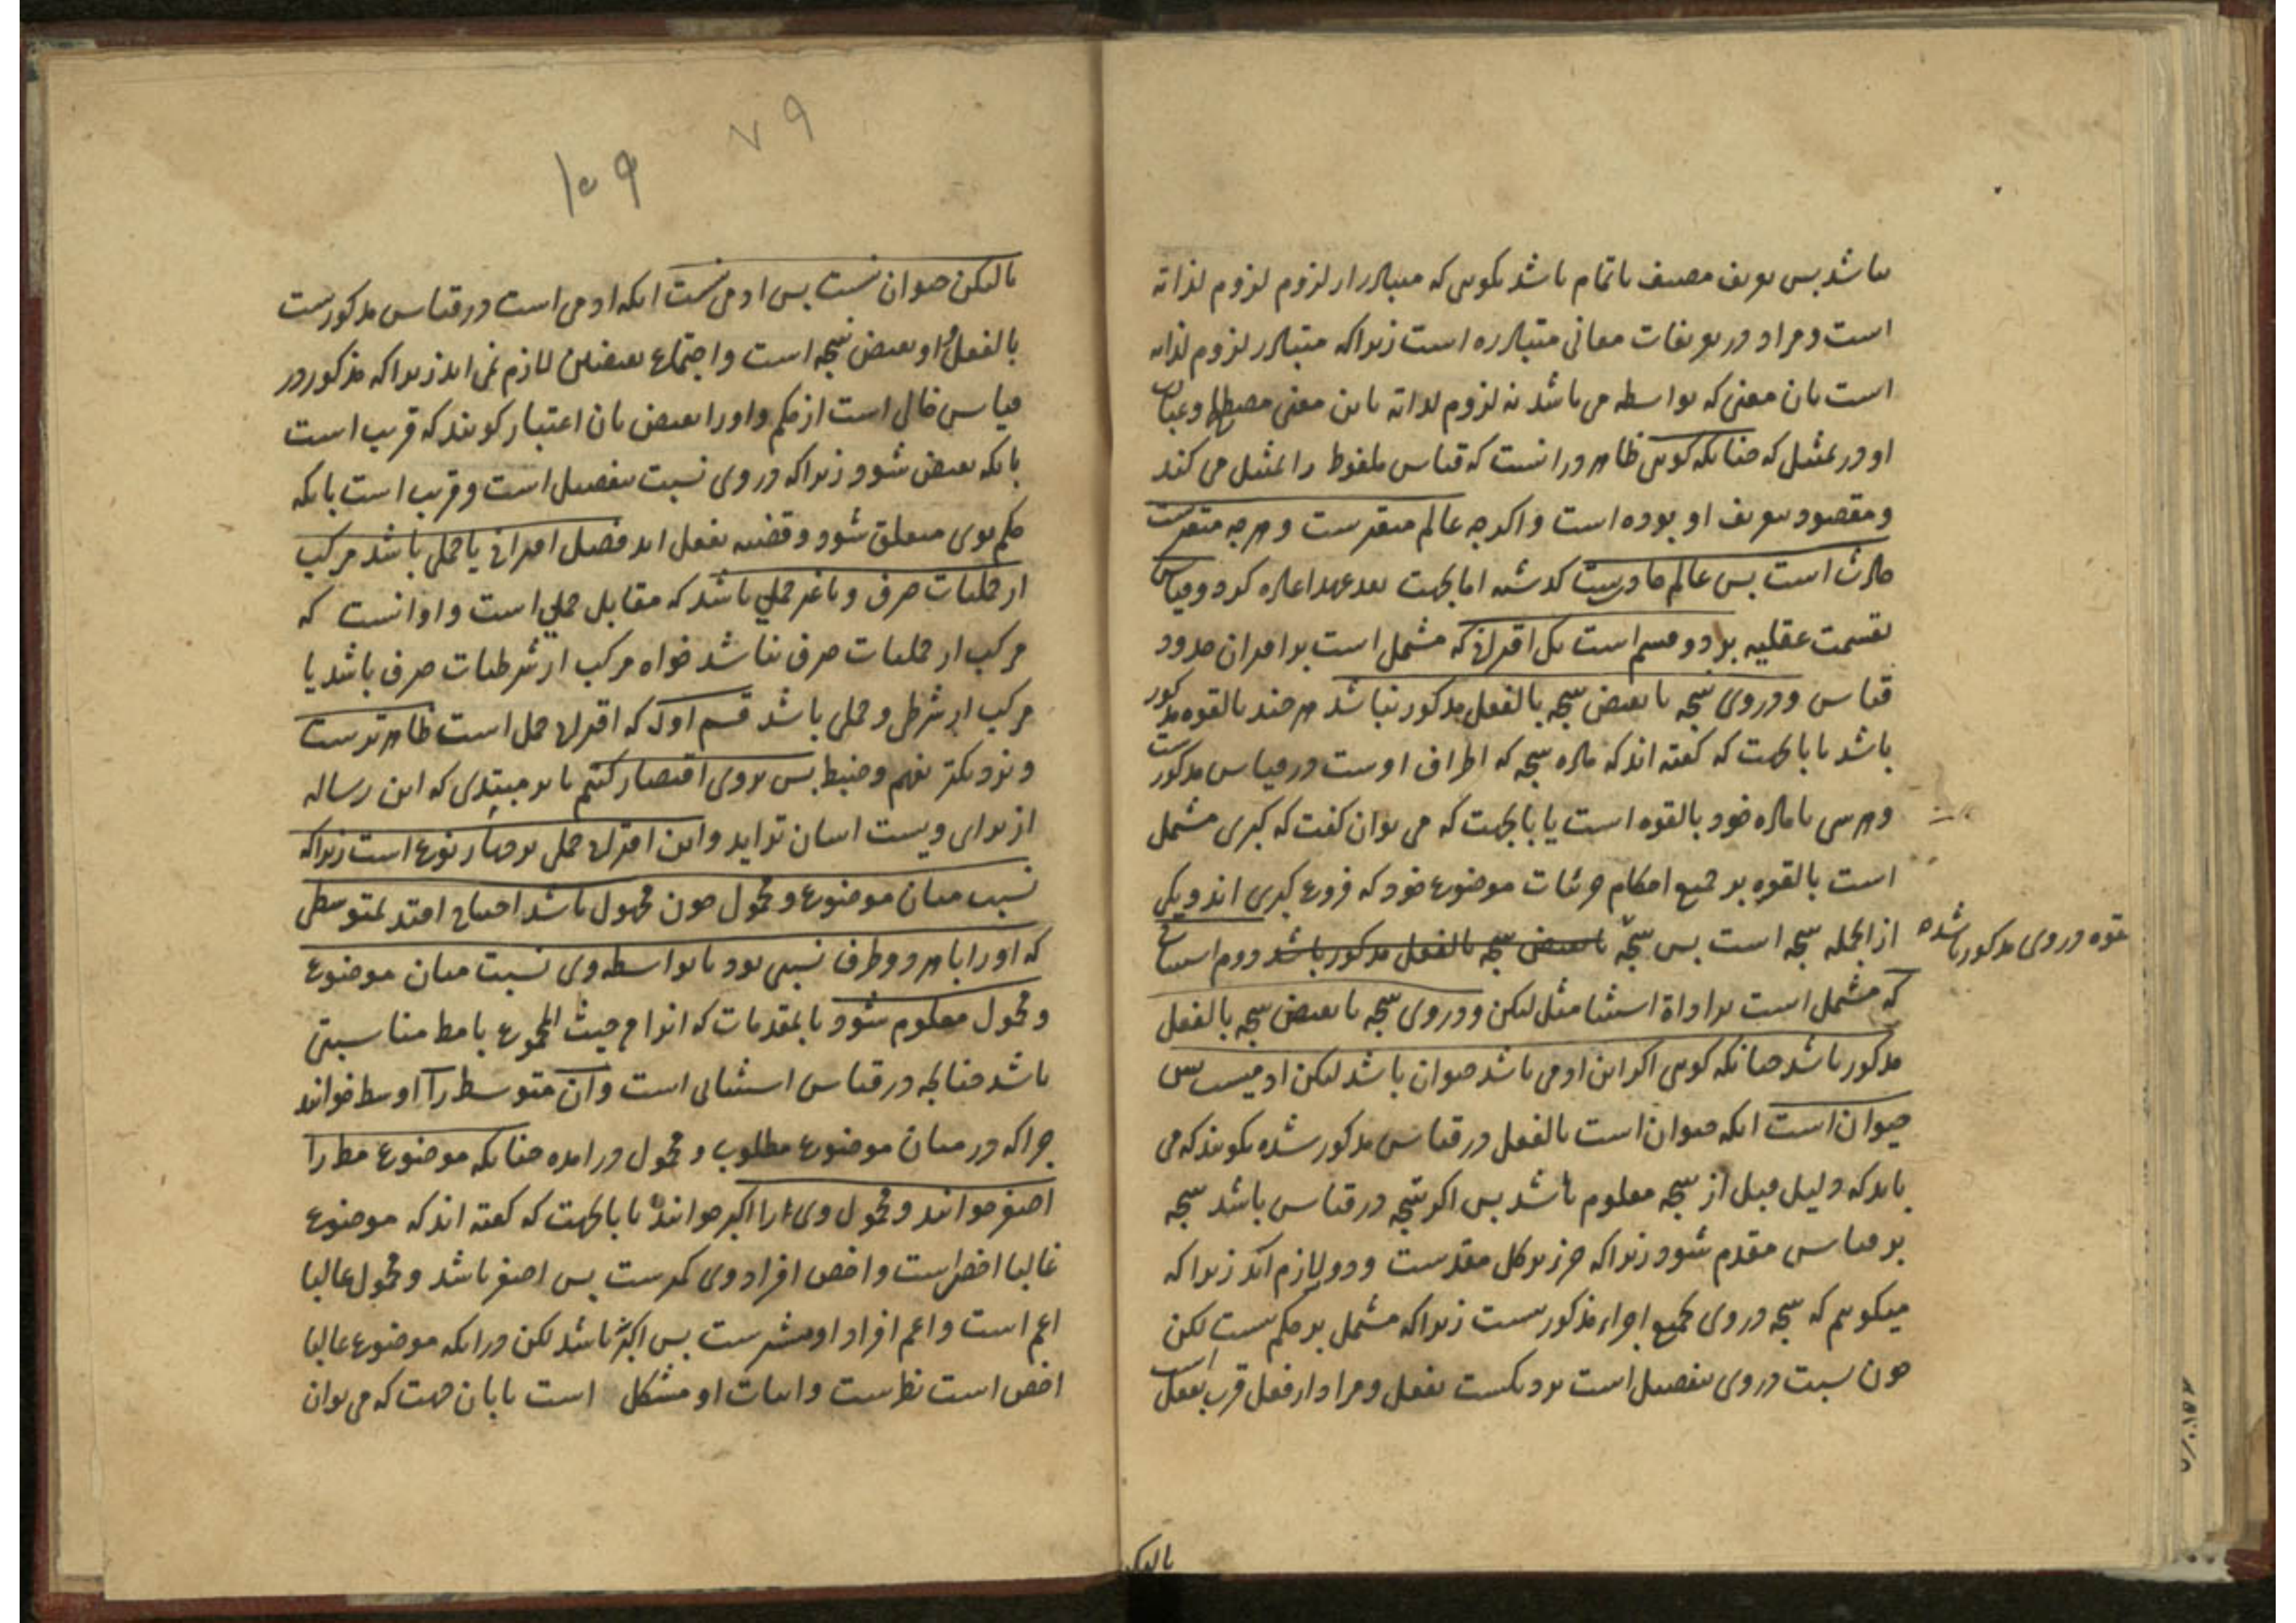 نباشد پس تعریف مصنف ناتمام باشد بگویی که متبادر از لزوم لزوم لذاته
است و مراد در تعریفات معانی متبادره است زیراکه متبادر لزوم لذاته
است بان معنی که بواسطه می باشد نه لزوم لذاته باین معنی مصطلح و عبارت
او در تمثیل که چنانکه گویی ظاهر در انست که قیاس ملفوظ را تمثیل می کند
و مقصود تعریف او بوده است و اگرچه عالم متغیرست و هرچه متغیرست
حادث است پس عالم حادثست گذشته اما بجهت بعد عهد اعاده کرد و قیاس
بقسمت عقلیه بر دو قسم است یکی اقترانی که مشتمل است بر اقتران حدود
قیاس و در وی نتیجه یا نقیض نتیجه بالفعل مذکور نباشد هرچند بالقوه مذکور
باشد یا بانجهت که گفته اند که ماده نتیجه که اطراف اوست در قیاس مذکورست
و هر شی با ماده خود بالقوه است یا بانجهت که می توان گفت که کبری مشتمل
است بالقوه بر جمیع احکام جزئیات موضوع خود که فروع کبری اند و یکی
از انجمله نتیجه است پس نتیجه یا نقیض نتیجه بالفعل مذکور باشد دوم استثنائی
بقوه در وی مذکور باشد
که مشتمل است بر اداة استثنا مثل لیکن و در وی نتیجه یا نقیض نتیجه بالفعل
مذکور باشد چنانکه گویی اگر این ادمی باشد حیوان باشد لیکن ادمیست پس
حیوان است انکه حیوان است بالفعل در قیاس مذکور شده نگویند که می
باید که دلیل قبل از نتیجه معلوم باشد پس اگر نتیجه در قیاس باشد نتیجه
بر قیاس مقدم شود زیراکه جزء بر کل مقدمست و دور لازم آید زیراکه
میگویم که نتیجه در وی بجمیع اجزاء مذکور نیست زیراکه مشتمل بر حکم نیست لکن
چون نسبت در وی بتفصیل است نزدیکست بفعل و مراد از فعل قریب بفعل است
بالیکن
۷۹
۱۰۹
یا لیکن حیوان نیست پس ادمی نیست انکه ادمی است در قیاس مذکورست
بالفعل و او نقیض نتیجه است و اجتماع نقیضین لازم نمی اید زیراکه مذکور در
قیاس خالی است از حکم و او را نقیض بان اعتبار گویند که قریب است
بانکه نقیض شود زیراکه در وی نسبت بتفصیل است و قریب است بانکه
حکم بوی متعلق شود و قضیه بفعل اید فصل اقترانی یا حملی باشد مرکب
از حملیات صرف و یا غیر حملی باشد که مقابل حملی است و او انست که
مرکب از حملیات صرف نباشد خواه مرکب از شرطیات صرف باشد یا
مرکب از شرطی و حملی باشد قسم اول که اقترانی حملی است ظاهرترست
و نزدیکتر بفهم و ضبط پس بروی اقتصار کنیم تا بر مبتدی که این رساله
از برای ویست اسان تر اید و این اقترانی حملی بر چهار نوع است زیراکه
نسبت میان موضوع و محمول چون مجهول باشد احتیاج افتد بمتوسطی
که او را با هر دو طرف نسبتی بود تا بواسطه وی نسبت میان موضوع
و محمول معلوم شود یا بمقدمات که انرا من حیث المجموع با مط مناسبتی
باشد چنانچه در قیاس استثنائی است و آن متوسط را اوسط خوانند
چراکه در میان موضوع مطلوب و محمول در امده چنانکه موضوع مط را
اصغر خوانند و محمول وی را اکبر خوانند یا بانجهت که گفته اند که موضوع
غالبا اخص است و اخص افراد وی کمترست پس اصغر باشد و محمول غالبا
اعم است و اعم افراد او بیشترست پس اکبر باشد لکن در انکه موضوع غالبا
اخص است نظرست و اثبات او مشکل است یا بان جهت که می توان